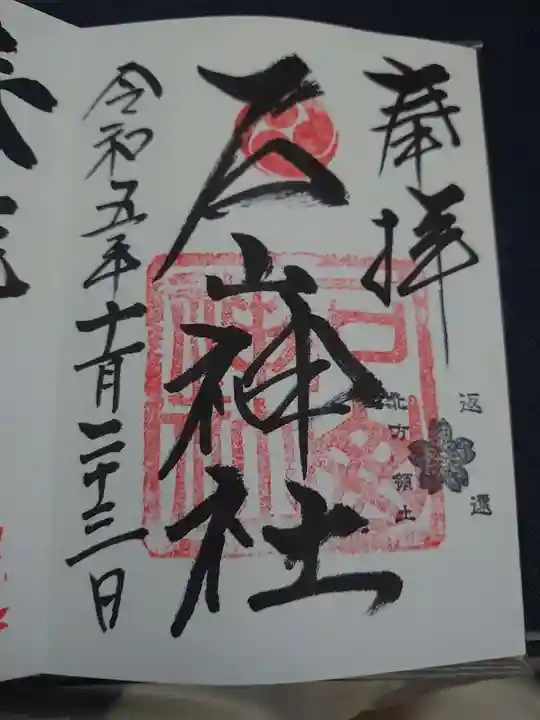 奉拝
返還
北方領土
山神社
令和五年十一月二十三日